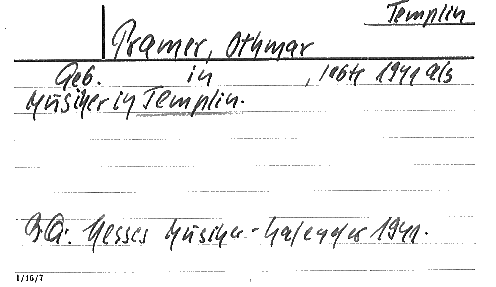 Templin
Pramer, Othmar
Geb. in , lebte 1941 als
Musiker in Templin.
BQ: Hesses Musiker-Kalender 1941.
1/16/7